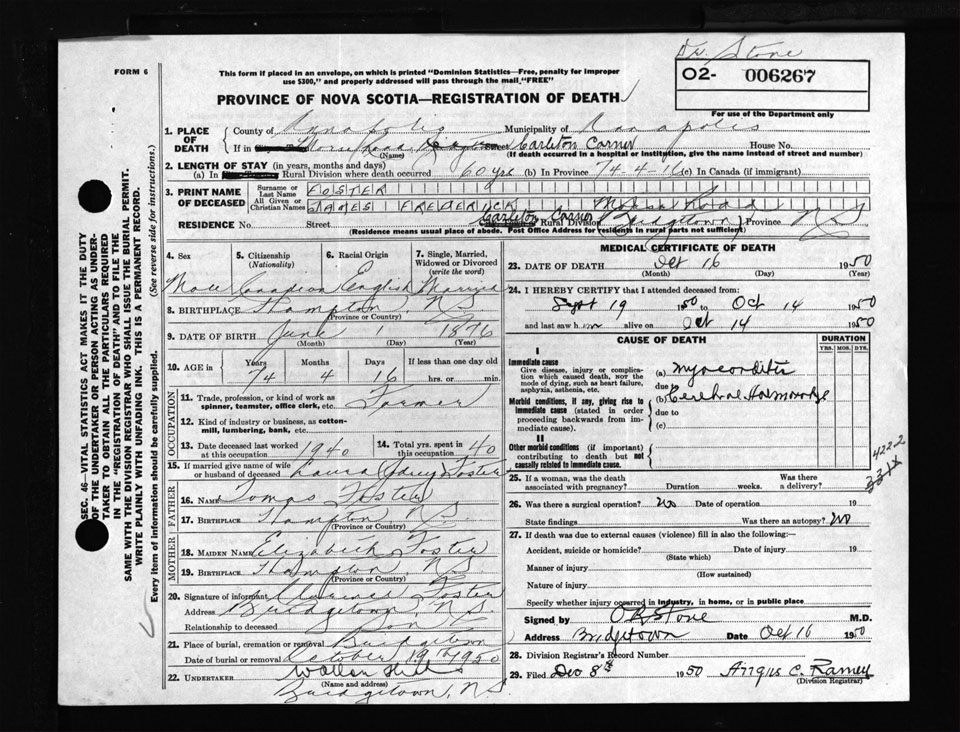 Dr. Stone
FORM 6
This form if placed in an envelope, on which is printed "Dominion Statistics—Free, penalty for improper
use $300," and properly addressed will pass through the mail "FREE"
02- 006267
PROVINCE OF NOVA SCOTIA—REGISTRATION OF DEATH
For use of the Department only
1. PLACE OF DEATH County of Annapolis Municipality of Annapolis
If in Street Carleton Corner House No.
(Name) (If death occurred in a hospital or institution, give the name instead of street and number)
2. LENGTH OF STAY (in years, months and days)
(a) In Rural Division where death occurred 60 yrs (b) In Province 74-4-16 (c) In Canada (if immigrant)
3. PRINT NAME OF DECEASED Surname or Last Name FOSTER
All Given or Christian Names JAMES FREDERICK
RESIDENCE No. Street Carleton Corner Rural Division Bridgetown Province N S
(Residence means usual place of abode. Post Office Address for residents in rural parts not sufficient)
4. Sex 5. Citizenship (Nationality) 6. Racial Origin 7. Single, Married, Widowed or Divorced (write the word)
Male Canadian English Married
8. BIRTHPLACE Hampton, N S
(Province or Country)
9. DATE OF BIRTH June 1 1876
(Month) (Day) (Year)
10. AGE in Years Months Days If less than one day old
74 4 16 hrs. or min.
OCCUPATION
11. Trade, profession, or kind of work as spinner, teamster, office clerk, etc. Farmer
12. Kind of industry or business, as cotton-mill, lumbering, bank, etc.
13. Date deceased last worked at this occupation 1940 14. Total yrs. spent in this occupation 40
15. If married give name of wife or husband of deceased Laura Foster
FATHER
16. NAME Tomas Foster
17. BIRTHPLACE Hampton, N.S.
(Province or Country)
MOTHER
18. MAIDEN NAME Elizabeth Foster
19. BIRTHPLACE Hampton, N.S.
(Province or Country)
20. Signature of informant Clarence Foster
Address Bridgetown, N.S.
Relationship to deceased Son
21. Place of burial, cremation or removal Bridgetown
Date of burial or removal October 19th 1950
22. UNDERTAKER
(Name and address)
Bridgetown, N.S.
MEDICAL CERTIFICATE OF DEATH
23. DATE OF DEATH Oct 16 1950
(Month) (Day) (Year)
24. I HEREBY CERTIFY that I attended deceased from:
Sept 19 1950 to Oct 14 1950
and last saw him alive on Oct 14 1950
CAUSE OF DEATH DURATION
YRS. MOS. DYS.
I
Immediate cause
Give disease, injury or complication which caused death, not the mode of dying, such as heart failure, asphyxia, asthenia, etc.
(a) Myocarditis
due to
Morbid conditions, if any, giving rise to immediate cause (stated in order proceeding backwards from immediate cause).
(b) Cerebral Haemorrhage
due to
(c)
II
Other morbid conditions (if important) contributing to death but not causally related to immediate cause.
422.2
25. If a woman, was the death associated with pregnancy? Duration weeks. Was there a delivery?
26. Was there a surgical operation? No Date of operation 19
State findings Was there an autopsy? No
27. If death was due to external causes (violence) fill in also the following:—
Accident, suicide or homicide? Date of injury 19
(State which)
Manner of injury
(How sustained)
Nature of injury
Specify whether injury occurred in industry, in home, or in public place
Signed by Stone M.D.
Address Bridgetown Date Oct 16 1950
28. Division Registrar's Record Number
29. Filed Dec 8th 1950 Angus C. Ramey
(Division Registrar)
SEC. 46—VITAL STATISTICS ACT MAKES IT THE DUTY
OF THE UNDERTAKER OR PERSON ACTING AS UNDER-
TAKER TO OBTAIN ALL THE PARTICULARS REQUIRED
IN THE "REGISTRATION OF DEATH" AND TO FILE THE
SAME WITH THE DIVISION REGISTRAR WHO SHALL ISSUE THE BURIAL PERMIT.
WRITE PLAINLY WITH UNFADING INK. THIS IS A PERMANENT RECORD.
Every item of information should be carefully supplied. (See reverse side for instructions.)